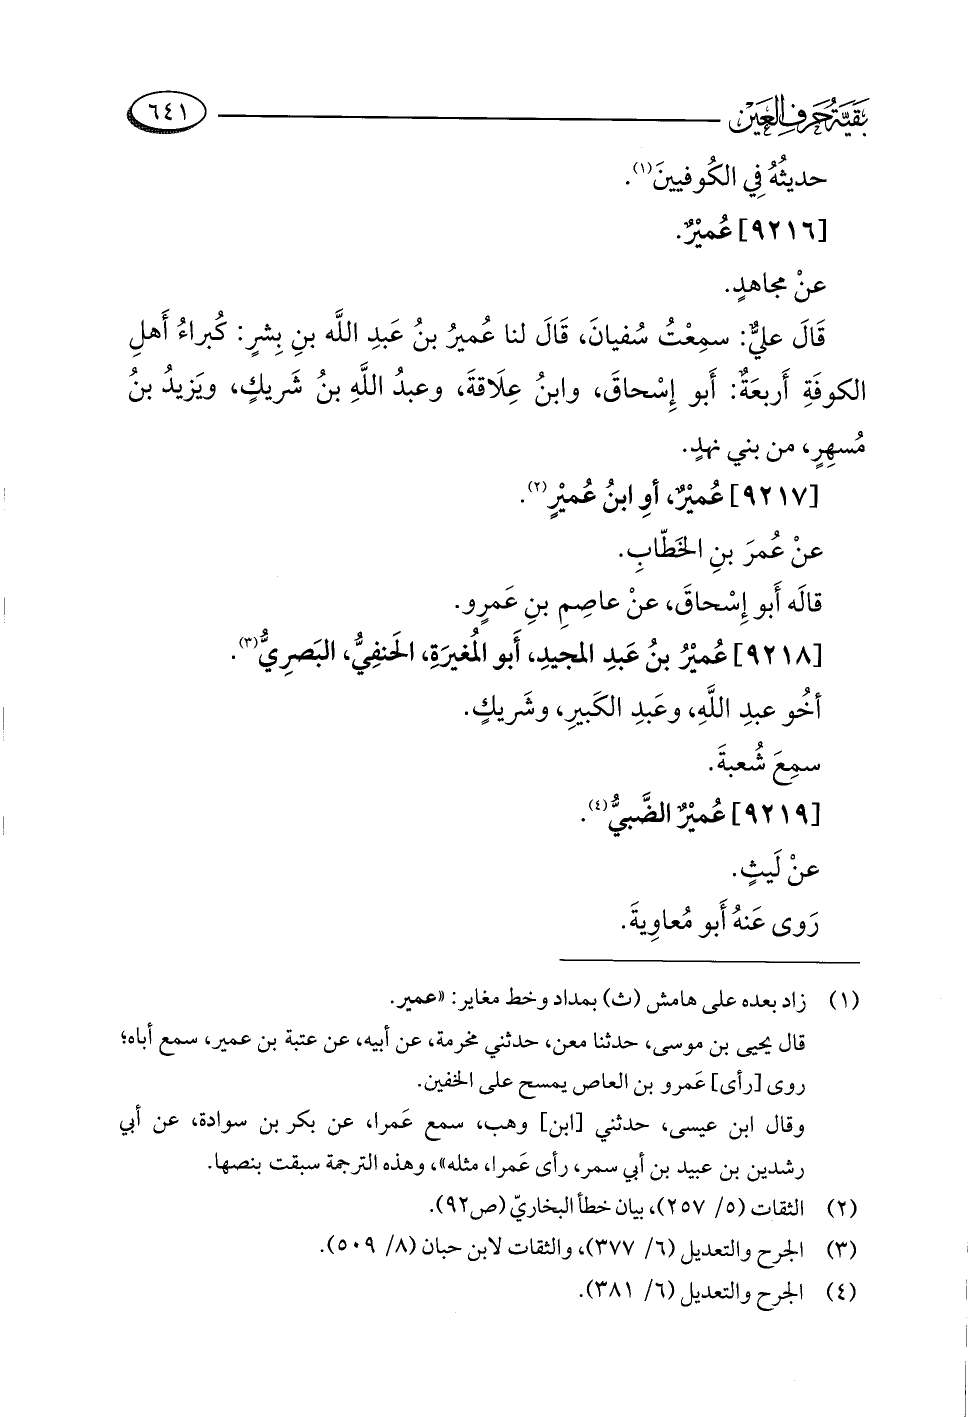 بَقيَّة حَرف العَين
٦٤١
حديثُهُ فِي الكُوفيينَ(١).
[٩٢١٦] عُميْرٌ.
عنْ مجاهدٍ.
قَالَ عليٌّ: سمِعْتُ سُفيانَ، قَالَ لنا عُميرُ بنُ عَبدِ الله بنِ بِشرٍ: كُبراءُ أَهلِ
الكوفَةِ أَربعَةٌ: أَبو إِسْحاقَ، وابنُ عِلَاقةَ، وعبدُ اللَّهِ بنُ شَريكٍ، ويَزيدُ بنُ
مُسهِرٍ، من بني نهدٍ.
[٩٢١٧] عُميْرٌ، أوِ ابنُ عُميْرٍ(٢).
عنْ عُمرَ بنِ الخَطّابِ.
قالَه أَبو إِسْحاقَ، عنْ عاصمِ بنِ عَمرٍو.
[٩٢١٨] عُميْرُ بنُ عَبدِ المجيدِ، أَبو المُغيرَةِ، الحَنفِيُّ، البَصرِيُّ(٣).
أخُو عبدِ اللَّهِ، وعَبدِ الكَبيرِ، وشَريكٍ.
سمِعَ شُعبةَ.
[٩٢١٩] عُميْرٌ الضَّبيُّ(٤).
عنْ لَيثٍ.
رَوى عَنهُ أَبو مُعاوِيةَ.
(١) زاد بعده على هامش (ث) بمداد وخط مغاير: «عمير.
قال يحيى بن موسى، حدثنا معن، حدثني مخرمة، عن أبيه، عن عتبة بن عمير، سمع أباه؛
روى [رأى] عَمرو بن العاص يمسح على الخفين.
وقال ابن عيسى، حدثني [ابن] وهب، سمع عَمرا، عن بكر بن سوادة، عن أبي
رشدين بن عبيد بن أبي سمر، رأى عَمرا، مثله»، وهذه الترجمة سبقت بنصها.
(٢) الثقات (٥/ ٢٥٧)، بيان خطأ البخاريّ (ص٩٢).
(٣) الجرح والتعديل (٦/ ٣٧٧)، والثقات لابن حبان (٨/ ٥٠٩).
(٤) الجرح والتعديل (٦/ ٣٨١).